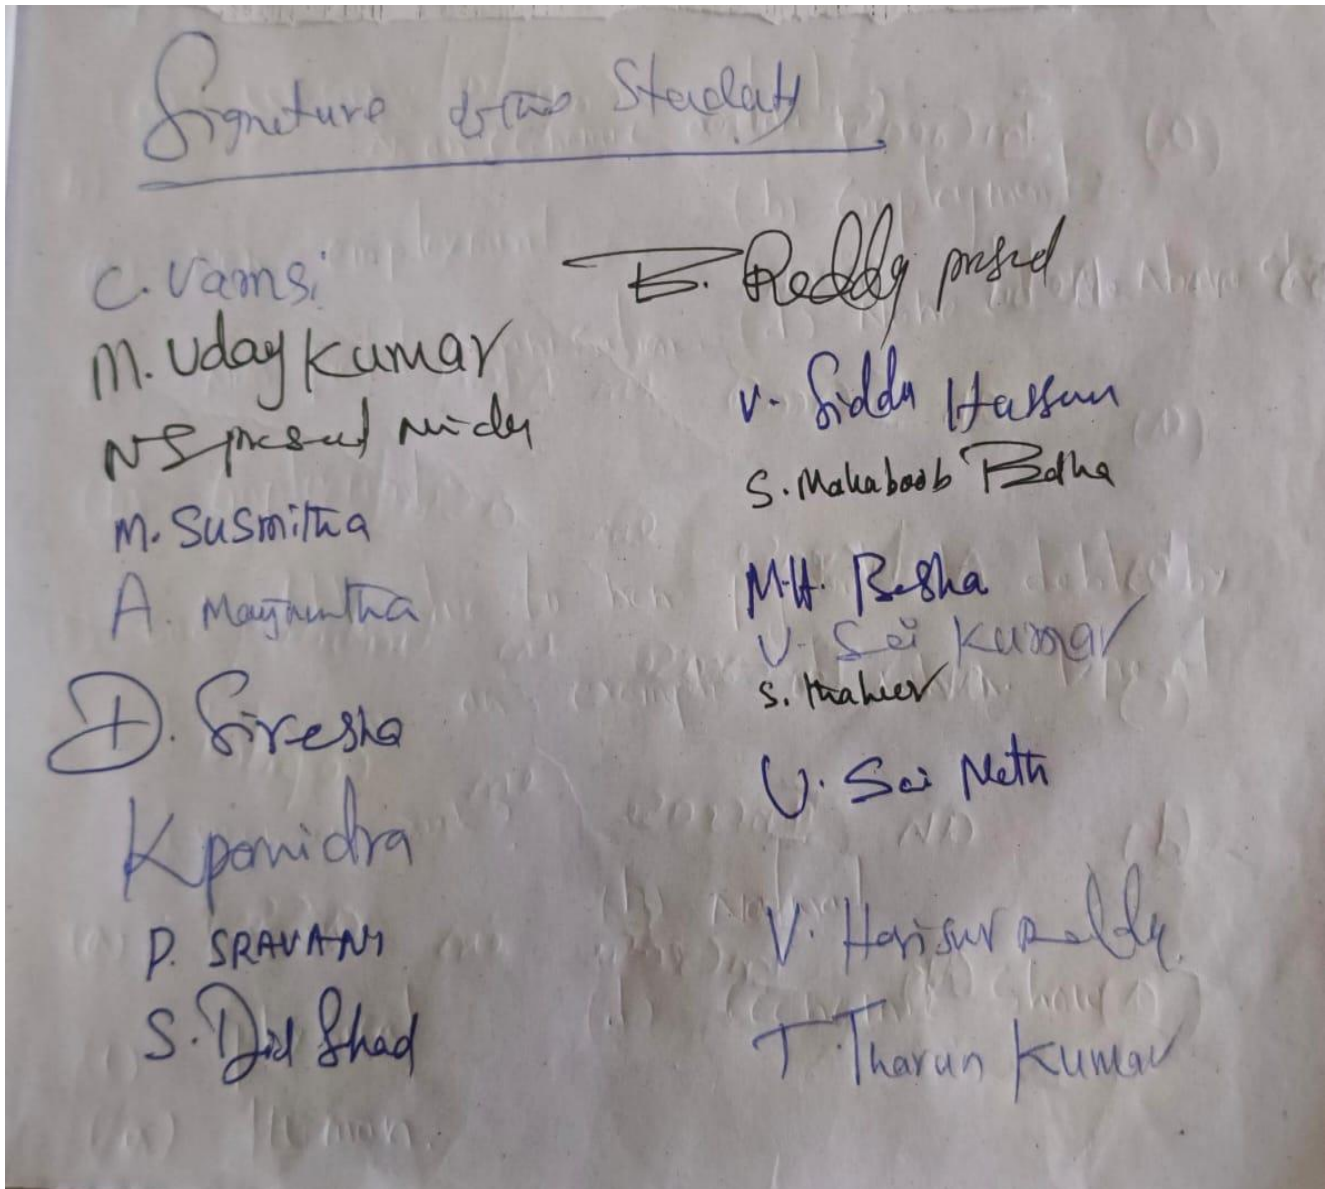 Signature of the Students
C. Vamsi
M. Uday Kumar
NS prasad
M. Susmitha
A. Manjuntha
D. Siresha
K pamidra
P. SRAVANI
S. Did Shad
B. Reddy prasad
V. Siddu Hassan
S. Mahaboob Basha
M.H. Basha
V. Sai Kumar
S. Thaheer
U. Sai Nath
V. Harisur Reddy
T. Tharun Kumar